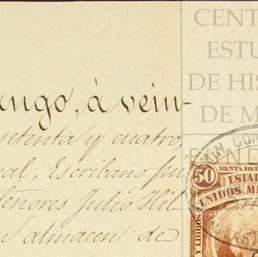 CENT
ESTU
DE HIS
DE M
ango, á vein-
setenta y cuatro,
eal, Escribano pú
Señores Julio Hil
almacen de
50
RENTA DEL
ESTA
UNIDOS M